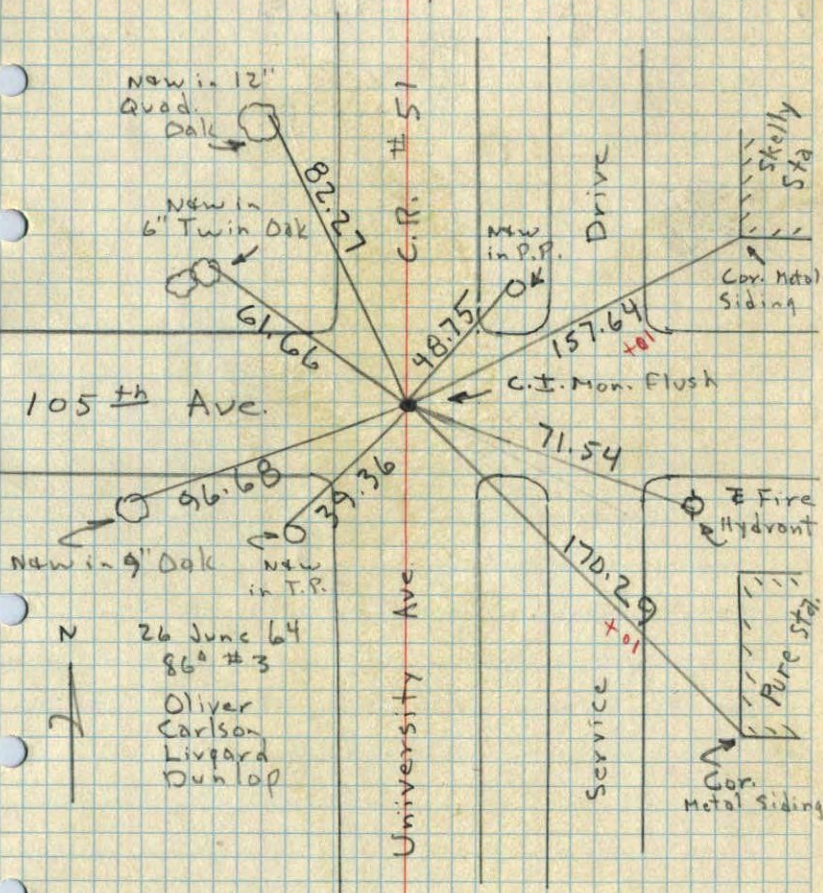 N&W in 12"
Quad.
Oak
82.27
C.R. #51
Skelly
Sta
N&W in
6" Twin Oak
61.66
N&W
in P.P.
48.75
Drive
157.64
+01
Cor. Metal
Siding
105th Ave.
C.I. Mon. Flush
71.54
96.68
39.36
Fire
Hydrant
N&W in 9" Oak
N&W
in T.P.
170.29
+01
Pure Sta.
N
26 June 64
86° #3
Oliver
Carlson
Livgard
Dunlop
University Ave.
Service
Cor.
Metal Siding